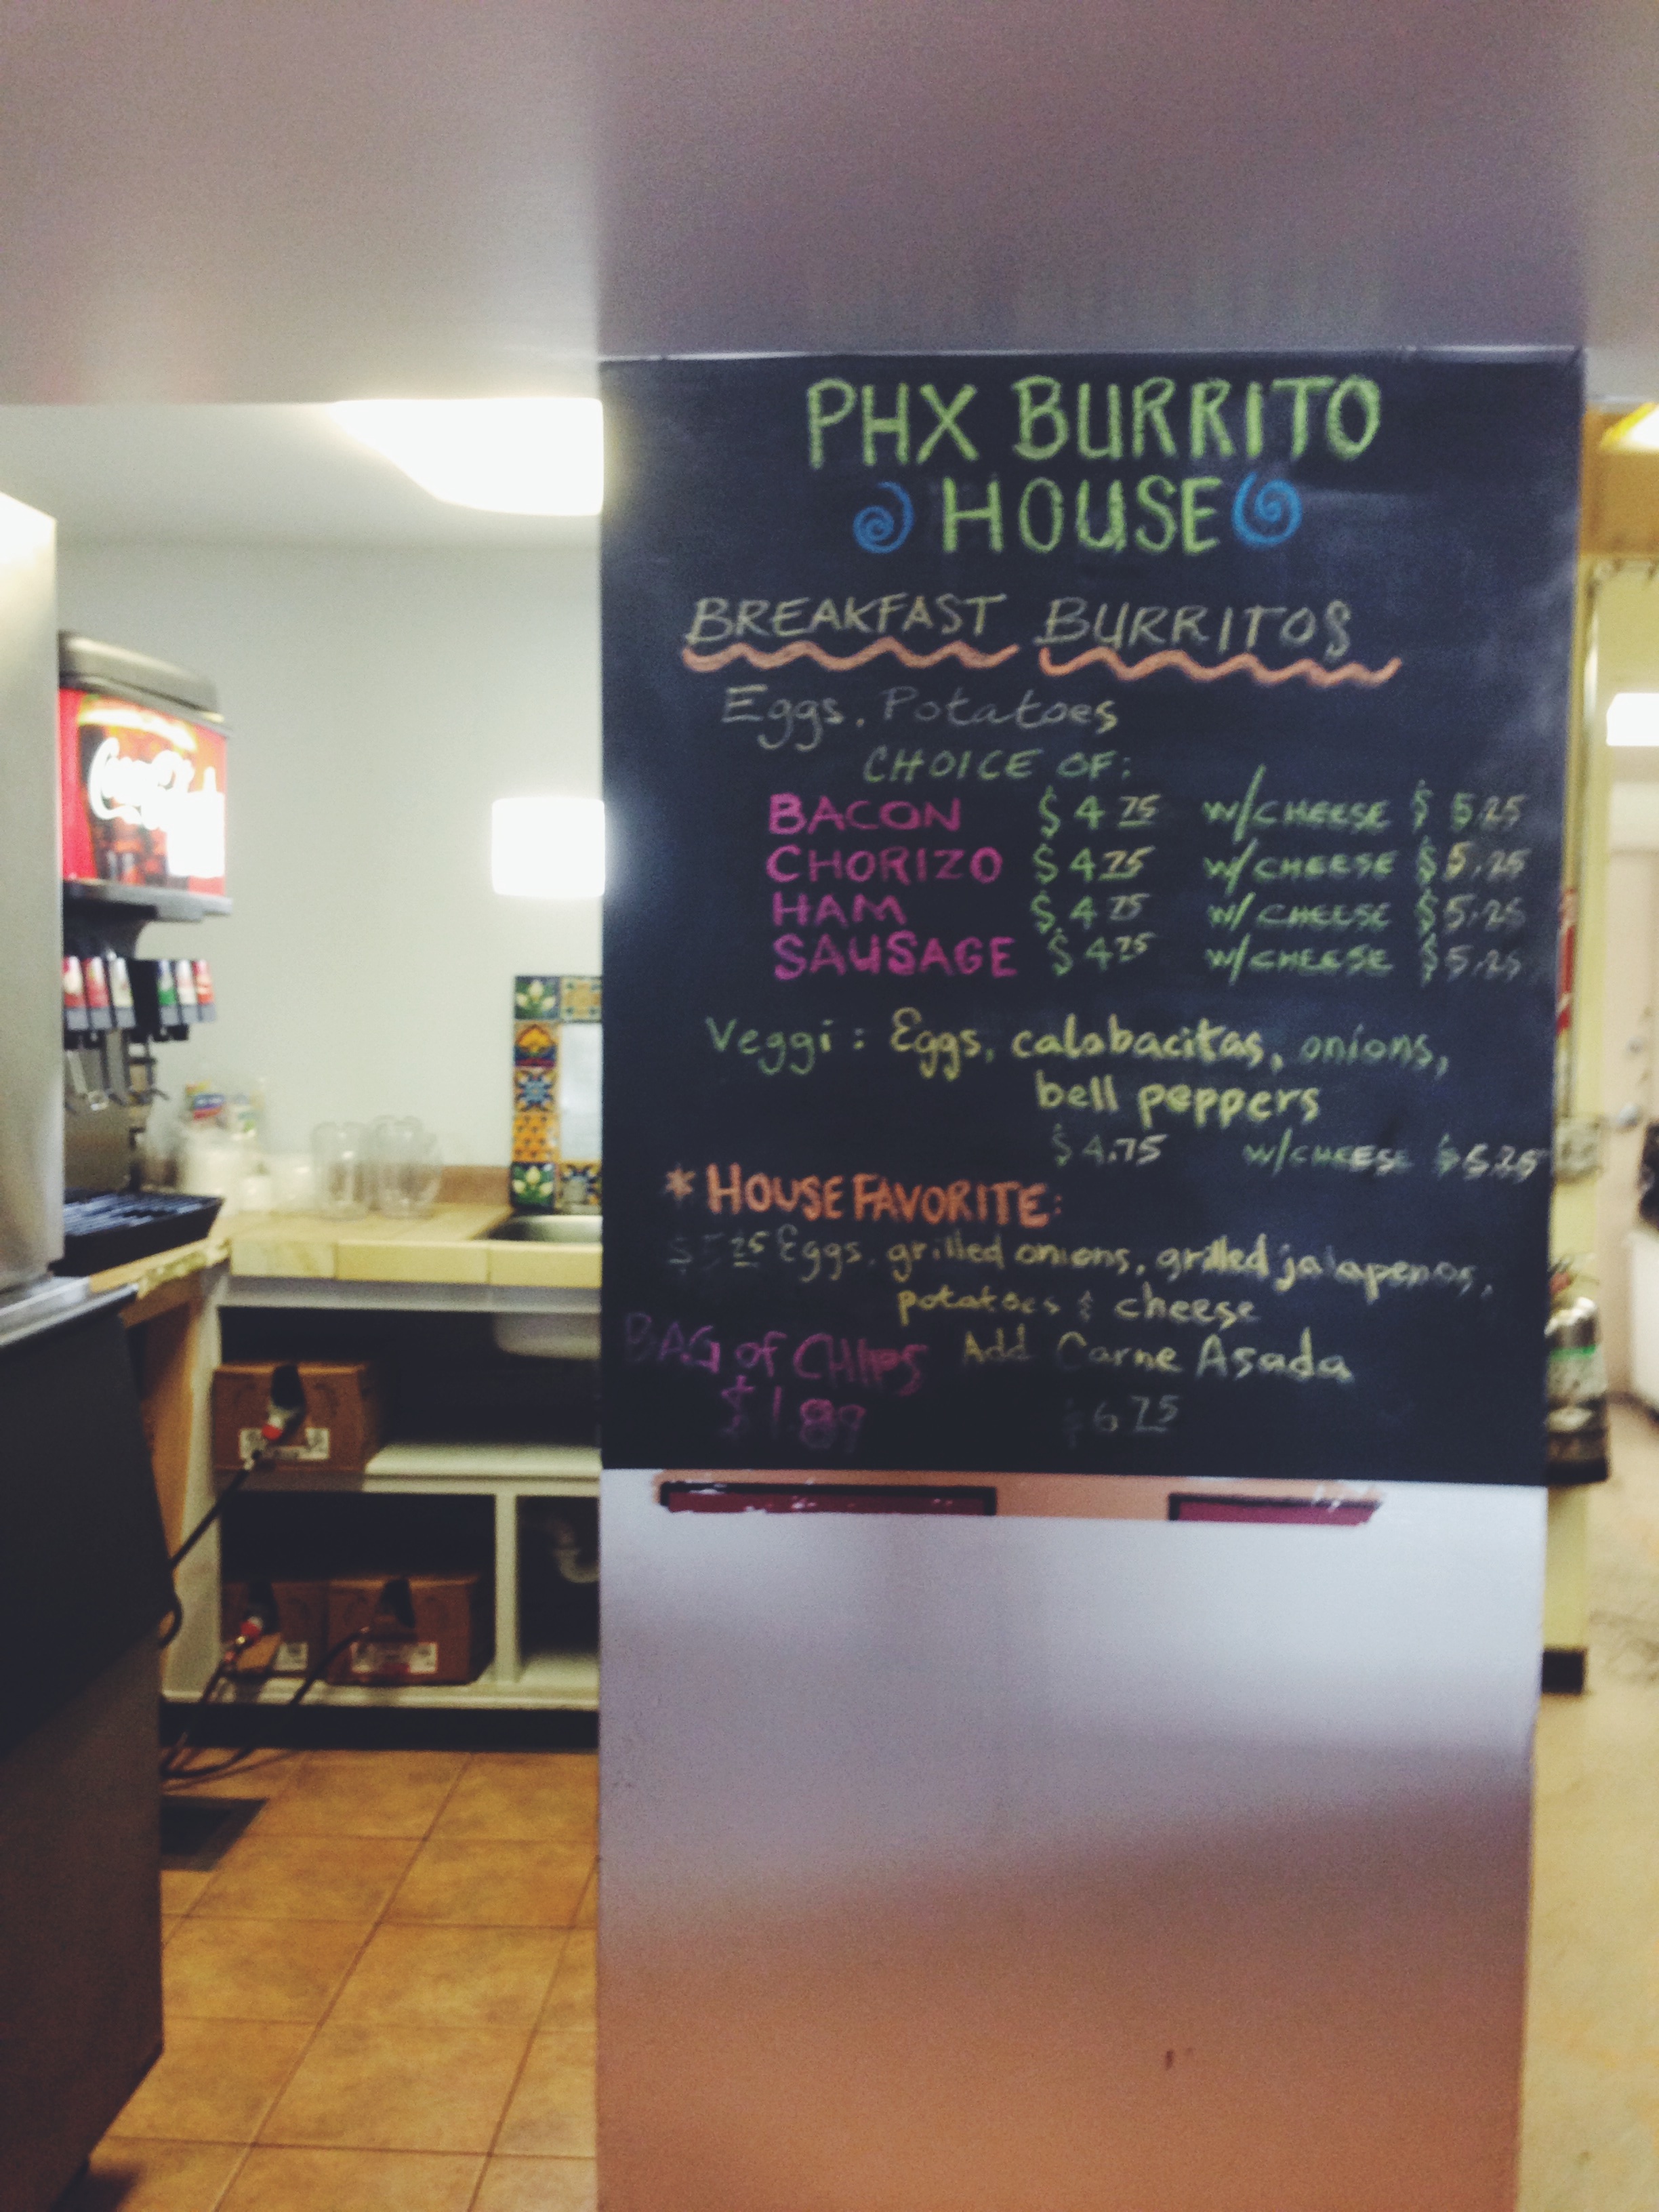 PHX BURRITO
HOUSE
BREAKFAST BURRITOS
Eggs, Potatoes
CHOICE OF:
BACON $4.75 w/CHEESE $5.25
CHORIZO $4.75 w/CHEESE $5.25
HAM $4.75 w/CHEESE $5.25
SAUSAGE $4.75 w/CHEESE $5.25
Veggi: Eggs, calabacitas, onions,
bell peppers
$4.75 w/CHEESE $5.25
* HOUSE FAVORITE:
$5.25 Eggs, grilled onions, grilled jalapenos,
potatoes & cheese
BAG of CHIPS Add Carne Asada
$1.89 $6.75
Coca-Cola